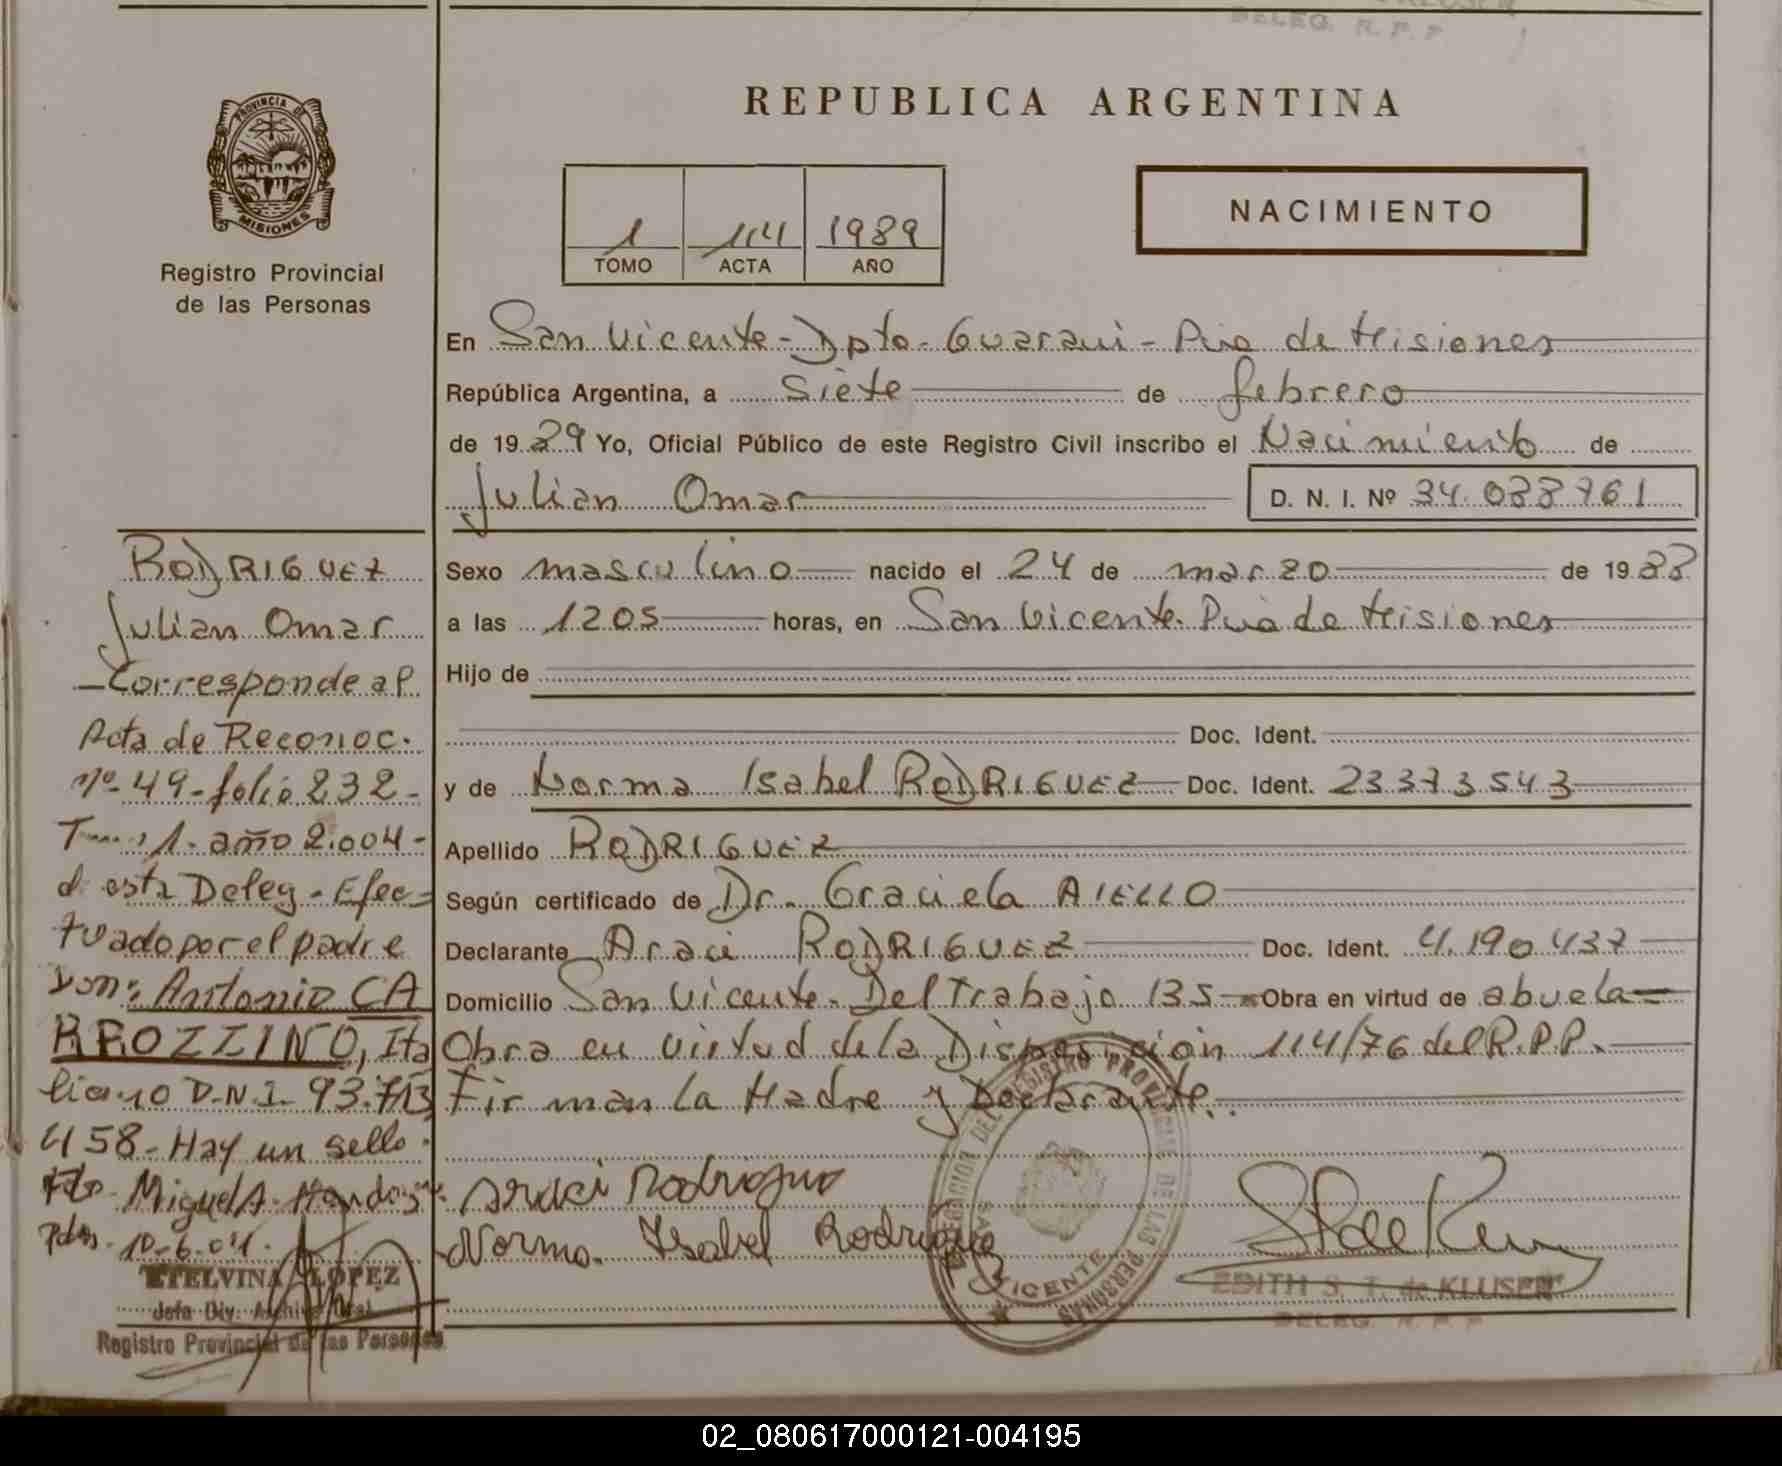 DELEG. R. P. P.
REPUBLICA ARGENTINA
PROVINCIA DE
MISIONES
Registro Provincial
de las Personas
1 114 1989
TOMO ACTA AÑO
NACIMIENTO
En San Vicente - Dpto - Guarani - Pcia de Misiones
República Argentina, a siete de febrero
de 1989 Yo, Oficial Público de este Registro Civil inscribo el Nacimiento de
Julian Omar D. N. I. Nº 34.088961
Sexo masculino nacido el 24 de marzo de 1988
a las 1205 horas, en San Vicente. Pcia de Misiones
Hijo de
Doc. Ident.
y de Norma Isabel RODRIGUEZ Doc. Ident. 23373543
Apellido RODRIGUEZ
Según certificado de Dr. Graciela AIELLO
Declarante Araci RODRIGUEZ Doc. Ident. 4.190.437
Domicilio San Vicente - Del Trabajo 135 - Obra en virtud de abuela
Obra en virtud de la Disposición 114/76 del R.P.P.
Firman la Madre y Declarante.
Araci Rodriguez
Norma Isabel Rodriguez
EDITH S. T. de KLUSER
DELEG. R. P. P.
RODRIGUEZ
Julian Omar
- Corresponde al
Acta de Reconoc.
Nº 49 - folio 232 -
1. año 2.004 -
d esta Deleg - Efec=
tuado por el padre
Don: Antonio CA
RROZZINO, Ita
liano D.N.I. 93.713
458 - Hay un sello.
Fdo. Miguel A.
Pdas. 10-6-04.
ETELVINA LOPEZ
Jefa Div. Archivo Gral.
Registro Provincial de las Personas
DEL REGISTRO PROVINCIAL DE LAS PERSONAS
SAN VICENTE
02_080617000121-004195